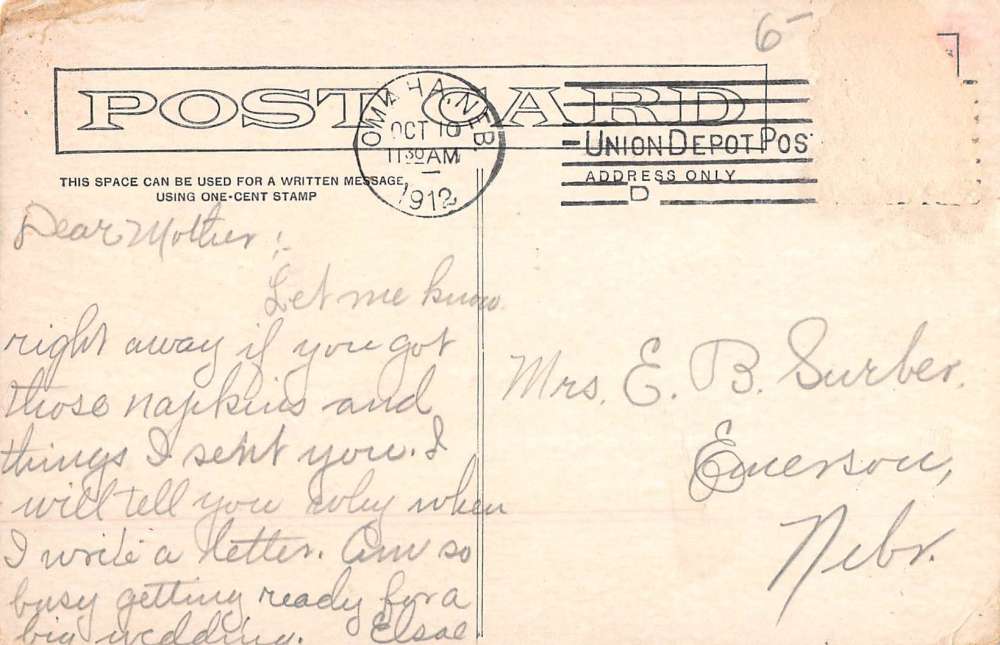 6-
POST CARD
OMAHA, NEB.
OCT 10
11 30 AM
1912
UNION DEPOT POS
ADDRESS ONLY
D
THIS SPACE CAN BE USED FOR A WRITTEN MESSAGE
USING ONE-CENT STAMP
Dear Mother!
Let me know
right away if you got
those napkins and
things I sent you. I
will tell you why when
I write a letter. Am so
busy getting ready for a
big wedding.
Mrs. E. B. Surber.
Emerson,
Nebr.